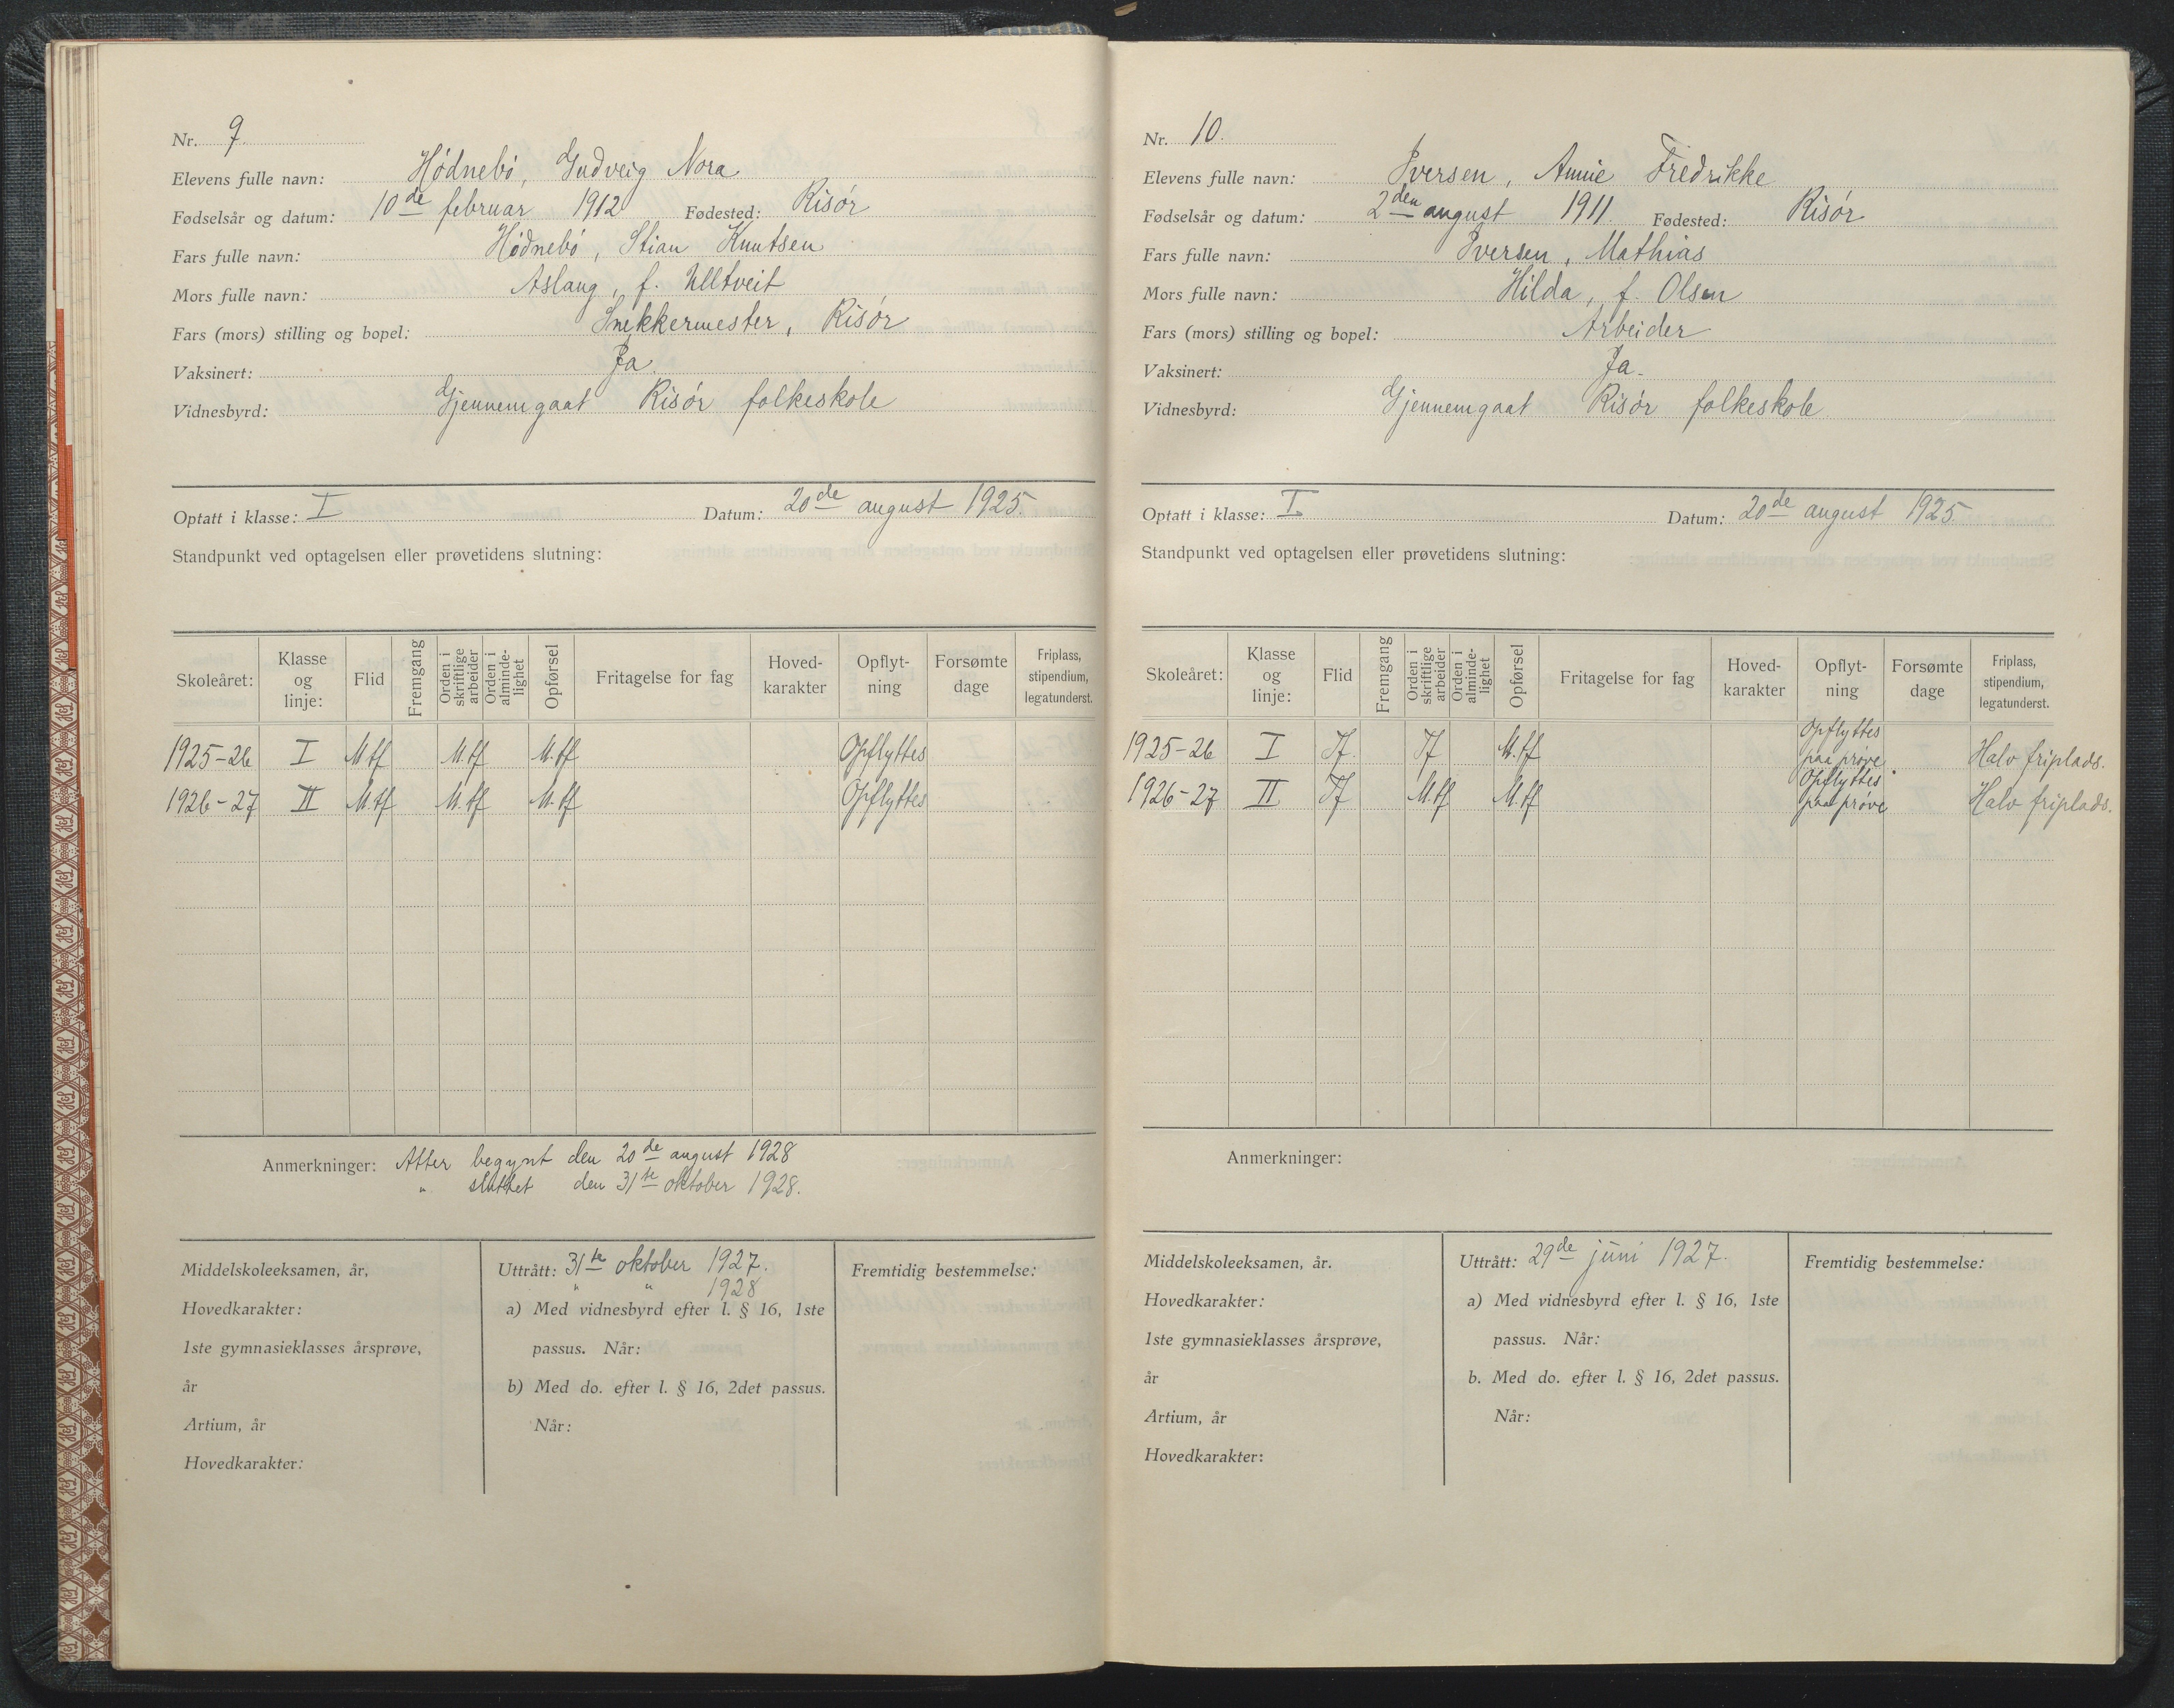 Nr. 9.
Elevens fulle navn: Hødnebø, Gudveig Nora
Fødselsår og datum: 10de februar 1912 Fødested: Risør
Fars fulle navn: Hødnebø, Stian Knutsen
Mors fulle navn: Aslaug, f. Ulltveit
Fars (mors) stilling og bopel: Snekkermester, Risør
Vaksinert: Ja.
Vidnesbyrd: Gjennemgaat Risør folkeskole
Optatt i klasse: I Datum: 20de august 1925.
Standpunkt ved optagelsen eller prøvetidens slutning:
Skoleåret: Klasse og linje: Flid Fremgang Orden i skriftlige arbeider Orden i alminde-lighet Opførsel Fritagelse for fag Hoved-karakter Opflyt-ning Forsømte dage Friplass, stipendium, legatunderst.
1925-26 I M.tf M.tf M.tf Opflyttes
1926-27 II M.tf M.tf M.tf Opflyttes
Anmerkninger: Atter begynt den 20de august 1928
" sluttet den 31te oktober 1928.
Middelskoleeksamen, år.
Hovedkarakter:
1ste gymnasieklasses årsprøve,
år
Artium, år
Hovedkarakter:
Uttrått: 31te oktober 1927.
" " 1928
a) Med vidnesbyrd efter l. § 16, 1ste
passus. Når:
b) Med do. efter l. § 16, 2det passus.
Når:
Fremtidig bestemmelse:
Nr. 10.
Elevens fulle navn: Iversen, Annie Fredrikke
Fødselsår og datum: 2den august 1911. Fødested: Risør
Fars fulle navn: Iversen, Mathias
Mors fulle navn: Hilda, f. Olsen
Fars (mors) stilling og bopel: Arbeider
Vaksinert: Ja.
Vidnesbyrd: Gjennemgaat Risør folkeskole
Optatt i klasse: I. Datum: 20de august 1925.
Standpunkt ved optagelsen eller prøvetidens slutning:
Skoleåret: Klasse og linje: Flid Fremgang Orden i skriftlige arbeider Orden i alminde-lighet Opførsel Fritagelse for fag Hoved-karakter Opflyt-ning Forsømte dage Friplass, stipendium, legatunderst.
1925-26 I Tf. Tf M.tf Opflyttes paa prøve. Halv friplads.
1926-27 II Tf M.tf M.tf Opflyttes paa prøve Halv friplads.
Anmerkninger:
Middelskoleeksamen, år.
Hovedkarakter:
1ste gymnasieklasses årsprøve,
år
Artium, år
Hovedkarakter:
Uttrått: 29de juni 1927.
a) Med vidnesbyrd efter l. § 16, 1ste
passus. Når:
b. Med do. efter l. § 16, 2det passus.
Når:
Fremtidig bestemmelse: